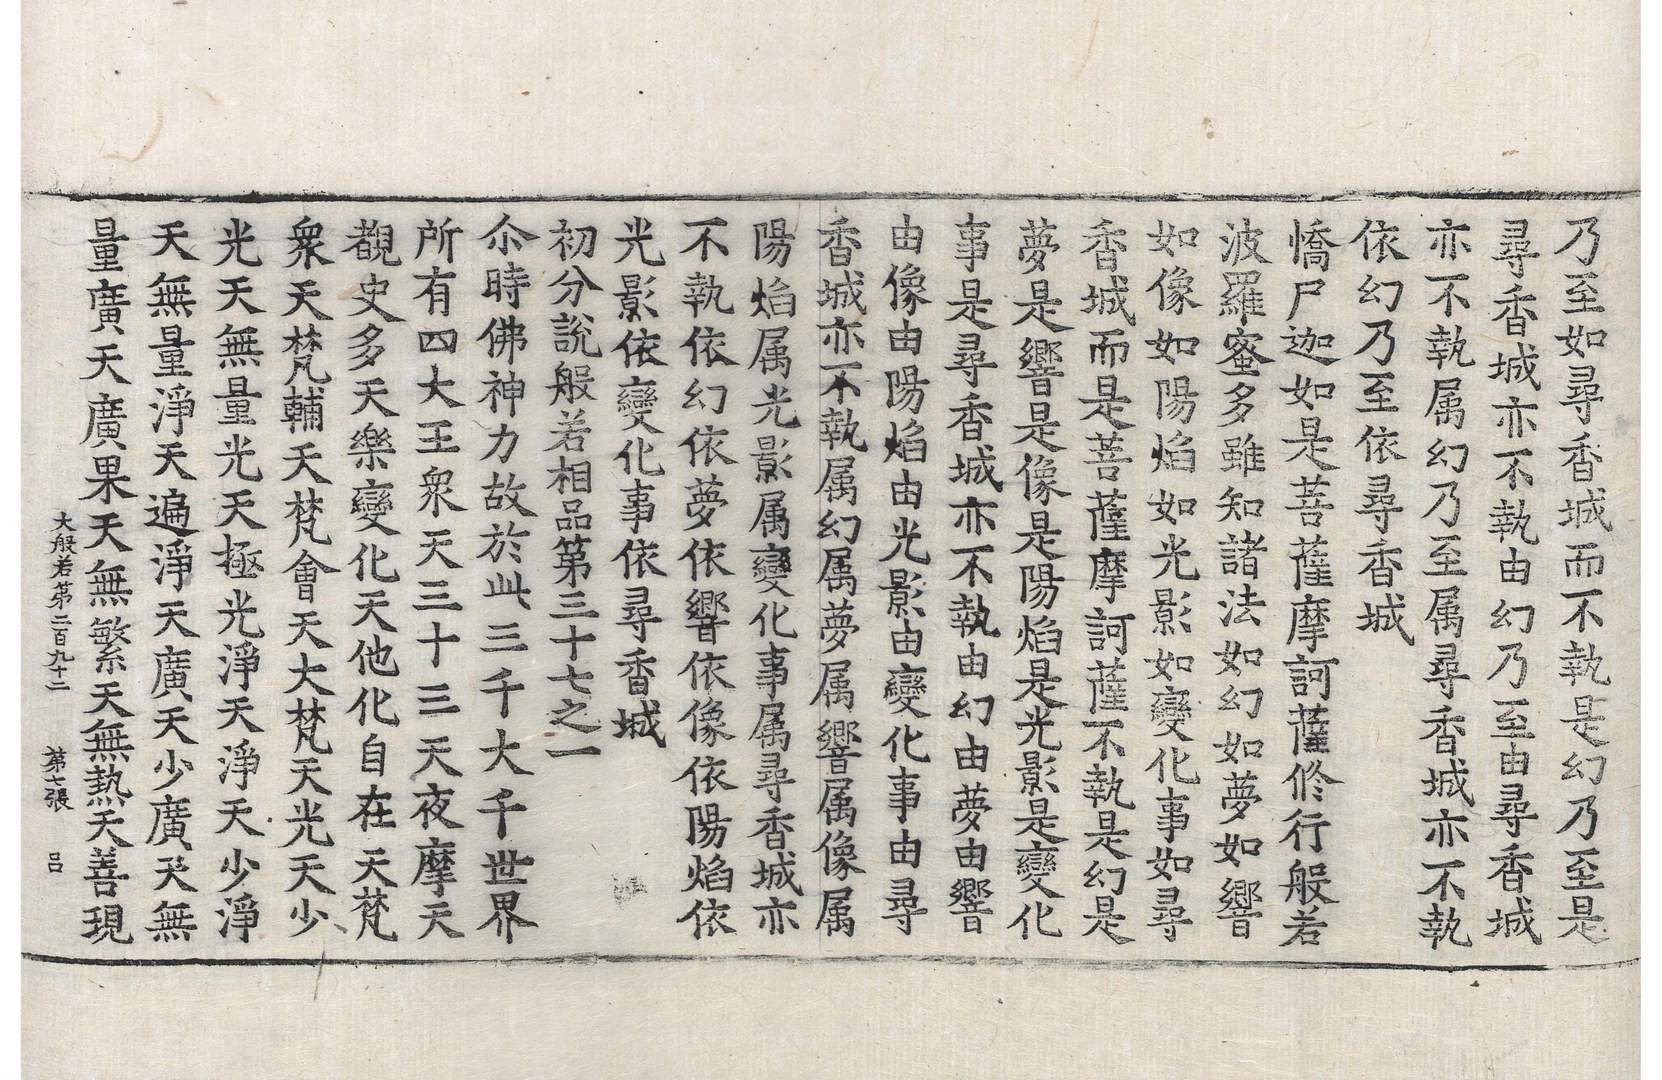 乃至如尋香城而不執是幻乃至是
尋香城亦不執由幻乃至由尋香城
亦不執属幻乃至属尋香城亦不執
依幻乃至依尋香城
憍尸迦如是菩薩摩訶薩修行般若
波羅蜜多雖知諸法如幻如夢如響
如像如陽焰如光影如變化事如尋
香城而是菩薩摩訶薩不執是幻是
夢是響是像是陽焰是光影是變化
事是尋香城亦不執由幻由夢由響
由像由陽焰由光影由變化事由尋
香城亦不執属幻属夢属響属像属
陽焰属光影属變化事属尋香城亦
不執依幻依夢依響依像依陽焰依
光影依變化事依尋香城
初分說般若相品第三十七之一
尒時佛神力故於此三千大千世界
所有四大王衆天三十三天夜摩天
覩史多天樂變化天他化自在天梵
衆天梵輔天梵會天大梵天光天少
光天無量光天極光淨天淨天少淨
天無量淨天遍淨天廣天少廣天無
量廣天廣果天無繁天無熱天善現
大般若第二百九十二 第七張 呂